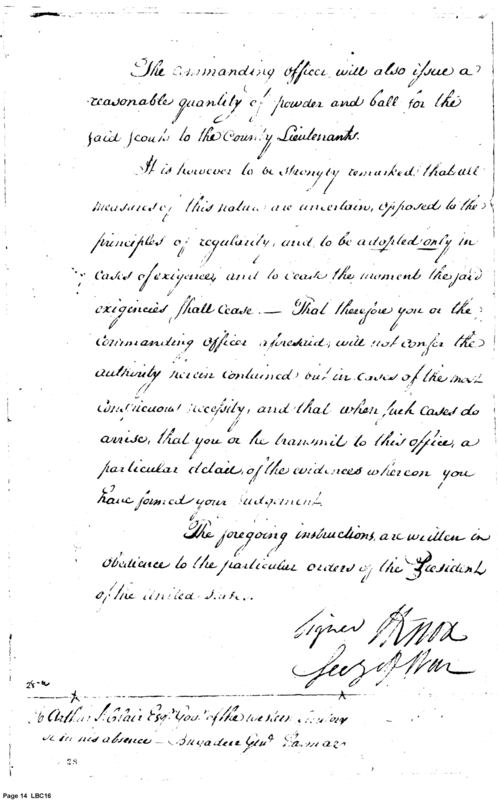 The commanding officer will also issue a
reasonable quantity of powder and ball for the
said scouts to the County Lieutenants.
It is however to be strongly remarked that all
measures of this nature are uncertain, opposed to the
principles of regularity, and to be adopted only in
cases of exigence, and to cease the moment the said
exigencies shall cease. — That therefore you or the
commanding officer aforesaid, will not confer the
authority herein contained but in cases of the most
conspicuous necessity, and that when such cases do
arise, that you or he transmit to this office, a
particular detail, of the evidences whereon you
have formed your Judgement.
The foregoing instructions, are written in
obedience to the particular orders of the President
of the United States.
Signed HKnox
Secy of War
To Arthur St. Clair Esqr. Govr. of the western Territory
or in his absence — Brigadier Genl. Harmar
28
Page 14 LBC16